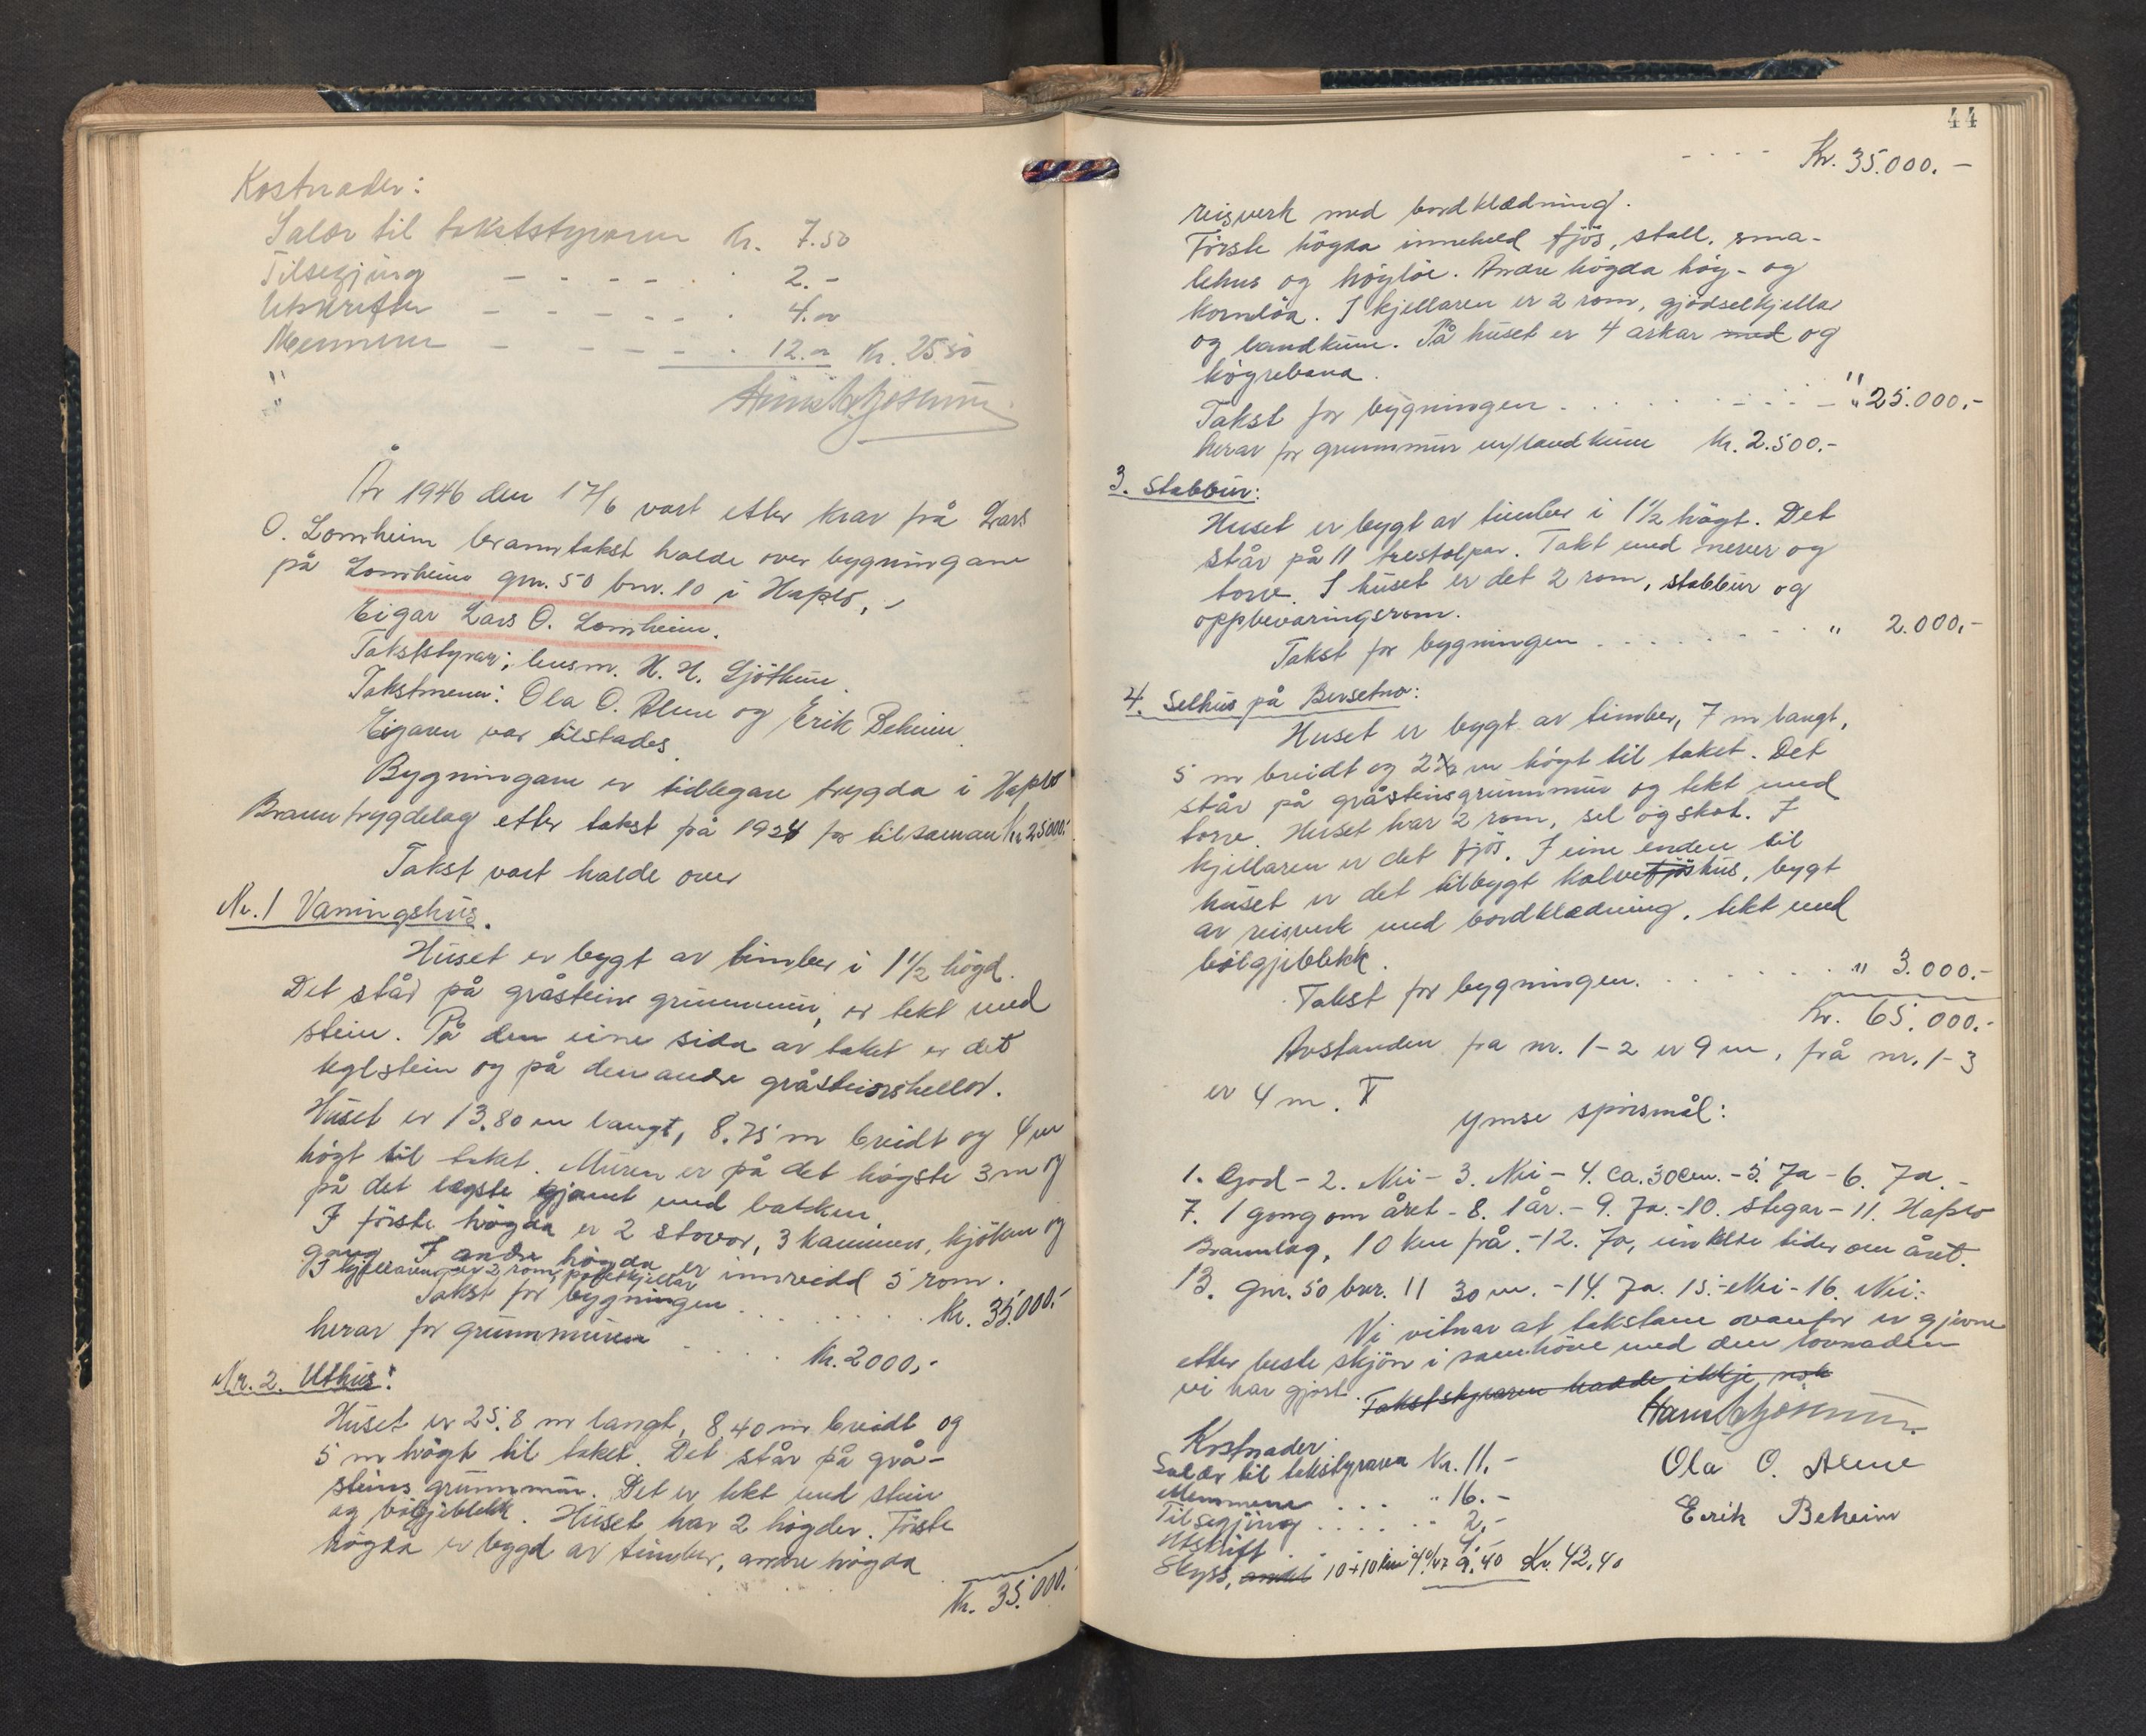 Kostnader:
Salær til takststyraren Kr. 7.50
Tilsegjing - - - - - 2.-
Utskrifter - - - - - 4.00
Mennene - - - - - 12.00 Kr. 25.50
"
År 1946 den 17/6 vart etter krav frå Lars
O. Lomheim branntakst halde over bygningane
på Lomheim gnr. 50 bnr. 10 i Hafslo,
Eigar Lars O. Lomheim.
Takststyrar: lensm. H. H. Sjøthun.
Takstmenn: Ola O. Alme og Erik Beheim.
Eigaren var tilstades.
Bygningane er tidlegare trygda i Hafslo
Branntrygdelag etter takst på 1924 for tilsaman Kr. 25000.-
Takst vart halde over
Nr. 1 Våningshus.
Huset er bygt av timber i 1 1/2 høgd.
Det står på gråsteins grunnmur, er tekt med
stein. På den eine sida av taket er det
teglstein og på den andre gråsteinsheller.
Huset er 13.80 m langt, 8.75 m breidt og 4 m
høgt til taket. Muren er på det høgste 3 m og
på det lægste gjamt med bakken.
I første høgda er 2 stovor, 3 kammers, kjøken og
gang. I andre høgda er innreidd 5 rom.
I kjellaren er 2 rom, potetkjellar
Takst for bygningen . . . . . . Kr. 35.000.-
herav for grunnmuren . . . . Kr. 2000,-
Nr. 2. Uthus:
Huset er 25.8 m langt, 8.40 m breidt og
5 m høgt til taket. Det står på grå-
steins grunnmur. Det er tekt med stein
og bølgjeblekk. Huset har 2 høgder. Første
høgda er bygd av timber, andre høgda
Kr. 35.000.-
44
- - - - Kr. 35.000.-
reisverk med bordklædning.
Første høgda inneheld fjøs, stall, sma-
lehus og høyløe. Andre høgda høy- og
kornløa. I kjellaren er 2 rom, gjødselkjellar
og landkum. På huset er 4 arkar med og
høgrebana.
Takst for bygningen . . . . . . . " 25.000,-
herav for grunnmur m/landkum Kr. 2.500.-
3. Stabbur:
Huset er bygt av timber i 1 1/2 høgt. Det
står på 11 trestolpar. Takt med never og
torv. I huset er det 2 rom, stabbur og
oppbevaringsrom.
Takst for bygningen . . . . . . . " 2.000,-
4. Selhus på Bersetno:
Huset er bygt av timber, 7 m langt,
5 m breidt og 2 1/2 m høgt til taket. Det
står på gråsteinsgrunnmur og tekt med
torv. Huset har 2 rom, sel og skot. I
kjellaren er det fjøs. I eine enden til
huset er det tilbygt kalvefjøshus, bygt
av reisverk med bordklædning, tekt med
bølgjeblekk.
Takst for bygningen. . . . . . . " 3.000.-
Kr. 65.000.-
Avstanden fra nr. 1-2 er 9 m, frå nr. 1-3
er 4 m.
Ymse spørsmål:
1. God - 2. Nei - 3. Nei - 4. Ca. 30 cm. - 5. Ja - 6. Ja. -
7. 1 gong om året - 8. 1 år. - 9. Ja. - 10. stegar - 11. Hafslo
Brannlag, 10 km frå. - 12. Ja, einkelte tider om året.
13. gnr. 50 bnr. 11 30 m. - 14. Ja. 15. - Nei - 16. Nei.-
Vi vitnar at takstane ovanfor er gjevne
etter beste skjøn i samhøve med den lovnaden
vi har gjort. Takststyraren hadde ikkje nok
Ola O. Alme
Erik Beheim
Kostnader:
Salær til takstyrara Kr. 11.-
Mennene . . . " 16.-
Tilsegjing . . . . " 2,-
Utskrift . . . . 4.-
Skyss, 10+10 km á 0/47 9.40 Kr. 42.40